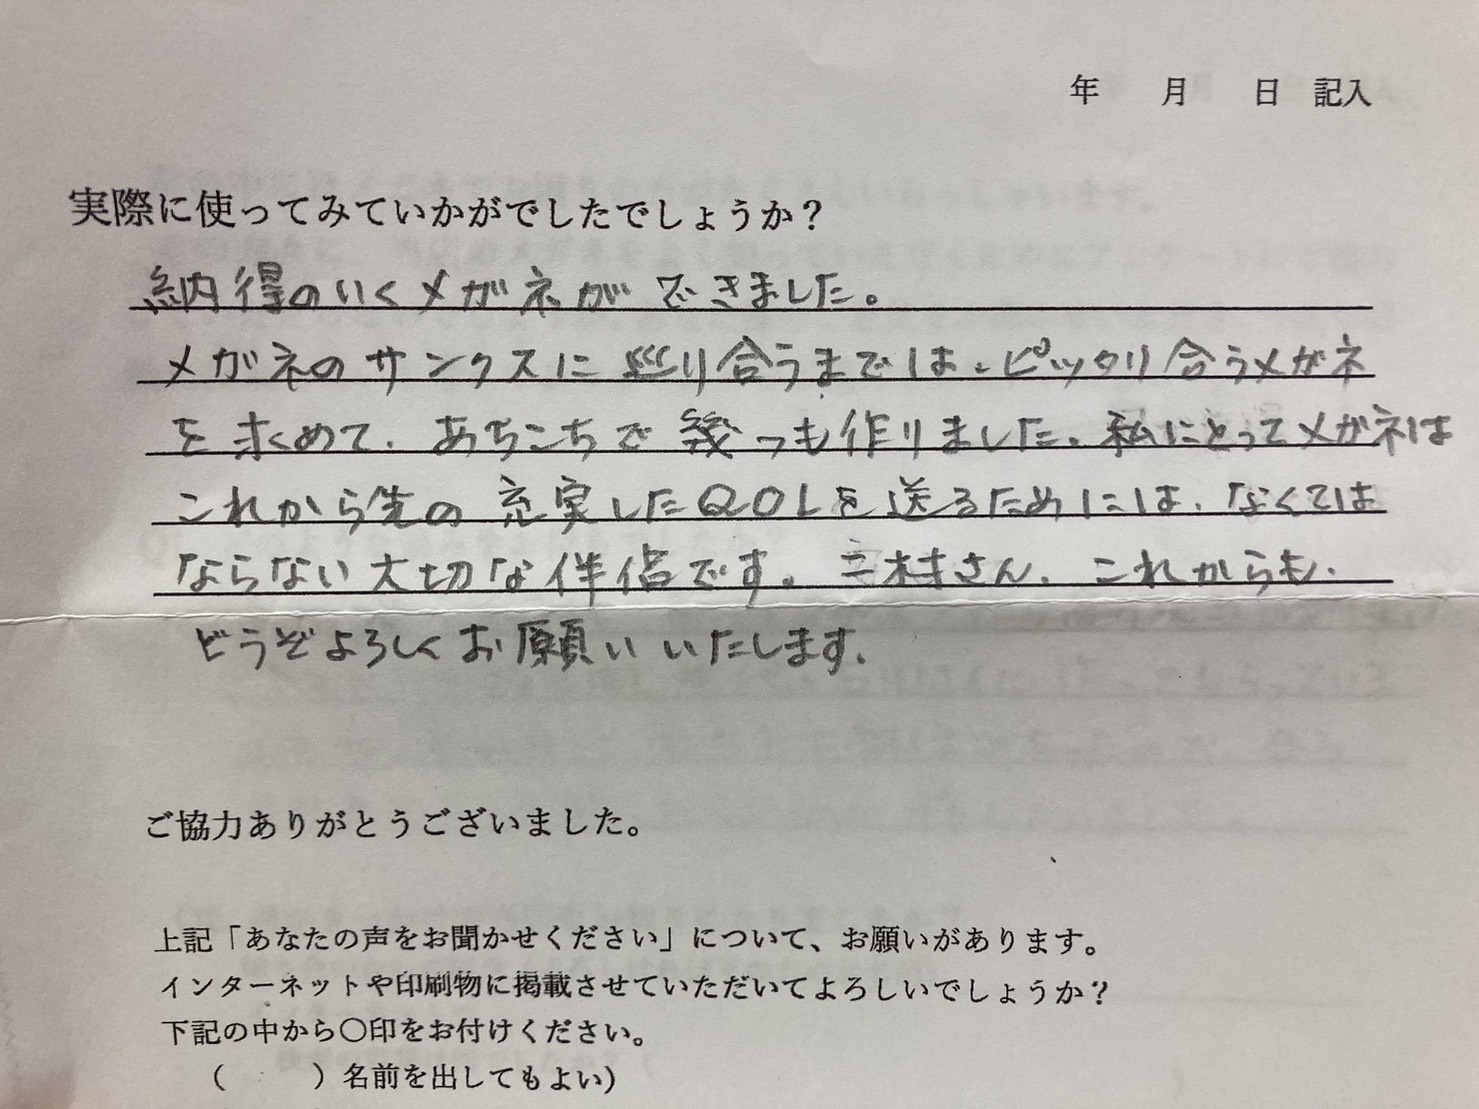 年 月 日 記入
実際に使ってみていかがでしたでしょうか？
納得のいくメガネができました。
メガネのサンクスに巡り合うまでは、ピッタリ合うメガネ
を求めて、あちこちで幾つも作りました。私にとってメガネは
これから先の充実したQOLを送るためには、なくては
ならない大切な伴侶です。三村さん、これからも、
どうぞよろしくお願いいたします。
ご協力ありがとうございました。
上記「あなたの声をお聞かせください」について、お願いがあります。
インターネットや印刷物に掲載させていただいてよろしいでしょうか？
下記の中から〇印をお付けください。
（ ）名前を出してもよい）